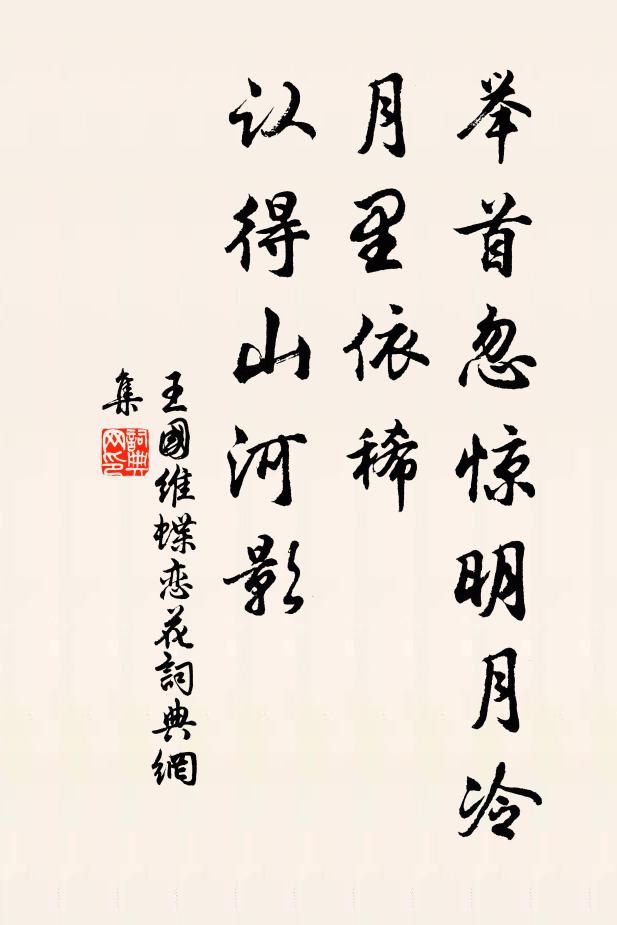 举首忽惊明月冷
月里依稀
认得山河影
王國维蝶恋花詞典網
集
詞典
网印